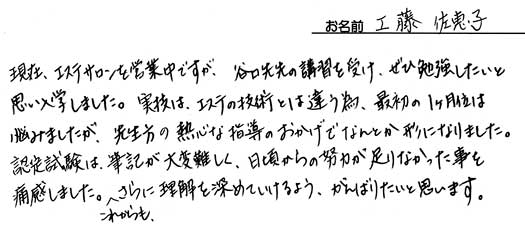 お名前 工藤 佐恵子
現在、エステサロンを営業中ですが、谷口先生の講習を受け、ぜひ勉強したいと
思い入学しました。実技は、エステの技術とは違う為、最初の1ヶ月位は
悩みましたが、先生方の熱心な指導のおかげでなんとか形になりました。
認定試験は、筆記が大変難しく、日頃からの努力が足りなかった事を
痛感しました。これからも、さらに理解を深めていけるよう、がんばりたいと思います。